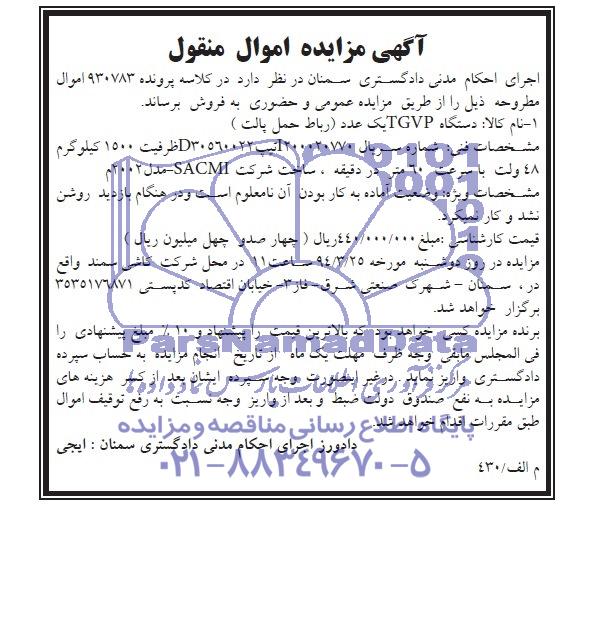 آگهی مزایده اموال منقول
اجرای احکام مدنی دادگستری سمنان در نظر دارد در کلاسه پرونده ۹۳۰۷۸۳ اموال
مطروحه ذیل را از طریق مزایده عمومی و حضوری به فروش برساند.
۱-نام کالا: دستگاه TGVP یک عدد (رباط حمل پالت )
مشخصات فنی: شماره سریال I۲۰۰۰۲۰۷۷۰تیپD۳۰۵۶۰۰۲۲ظرفیت ۱۵۰۰ کیلوگرم
۴۸ ولت با سرعت ۶۰ متر در دقیقه ، ساخت شرکت SACMI-مدل۲۰۰۲م
مشخصات ویژه: وضعیت آماده به کار بودن آن نامعلوم است ودر هنگام بازدید روشن
نشد و کار نمیکرد.
قیمت کارشناسی :مبلغ۴۴۰/۰۰۰/۰۰۰ریال ( چهار صدو چهل میلیون ریال )
مزایده در روز دوشنبه مورخه ۹۴/۳/۲۵ ساعت۱۱ در محل شرکت کاشی سمند واقع
در ، سمنان – شهرک صنعتی شرق- فاز۳- خیابان اقتصاد کدپستی ۳۵۳۵۱۷۶۸۷۱
برگزار خواهد شد.
برنده مزایده کسی خواهد بود که بالاترین قیمت را پیشنهاد و ۱۰٪ مبلغ پیشنهادی را
فی المجلس مابقی وجه ظرف مهلت یک ماه از تاریخ انجام مزایده به حساب سپرده
دادگستری واریز نماید. در غیر اینصورت وجه سپرده ایشان بعد از کسر هزینه های
مزایده به نفع صندوق دولت ضبط و بعد از واریز وجه نسبت به رفع توقیف اموال
طبق مقررات اقدام خواهد شد.
دادورز اجرای احکام مدنی دادگستری سمنان : ایجی
م الف/۴۳۰
ParsNamadData
مرکز فرآوری اطلاعات پارس نماد داده ها
پایگاه اطلاع رسانی مناقصه و مزایده
۰۲۱-۸۸۳۴۹۶۷۰-۵